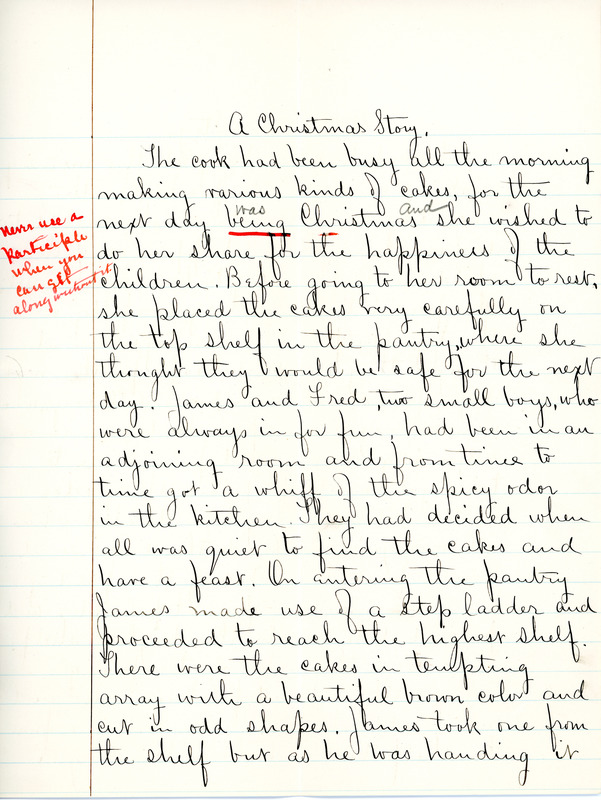 A Christmas Story.
The cook had been busy all the morning
making various kinds of cakes, for the
was and
next day being Christmas she wished to
do her share for the happiness of the
children. Before going to her room to rest,
she placed the cakes very carefully on
the top shelf in the pantry, where she
thought they would be safe for the next
day. James and Fred, two small boys, who
were always in for fun, had been in an
adjoining room and from time to
time got a whiff of the spicy odor
in the kitchen. They had decided when
all was quiet to find the cakes and
have a feast. On entering the pantry
James made use of a step ladder and
proceeded to reach the highest shelf.
There were the cakes in tempting
array with a beautiful brown color and
cut in odd shapes. James took one from
the shelf but as he was handing it
never use a
participle
when you
can get
along without it.